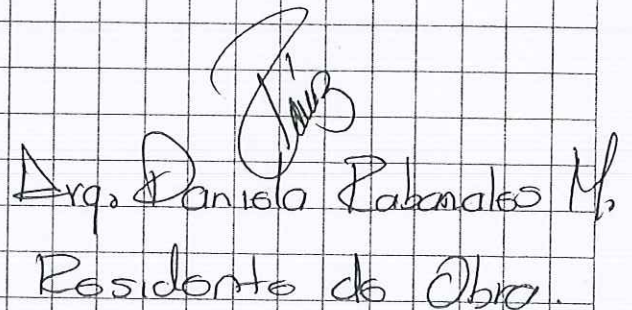 Arq. Daniela Rabanales M.
Residente de Obra.